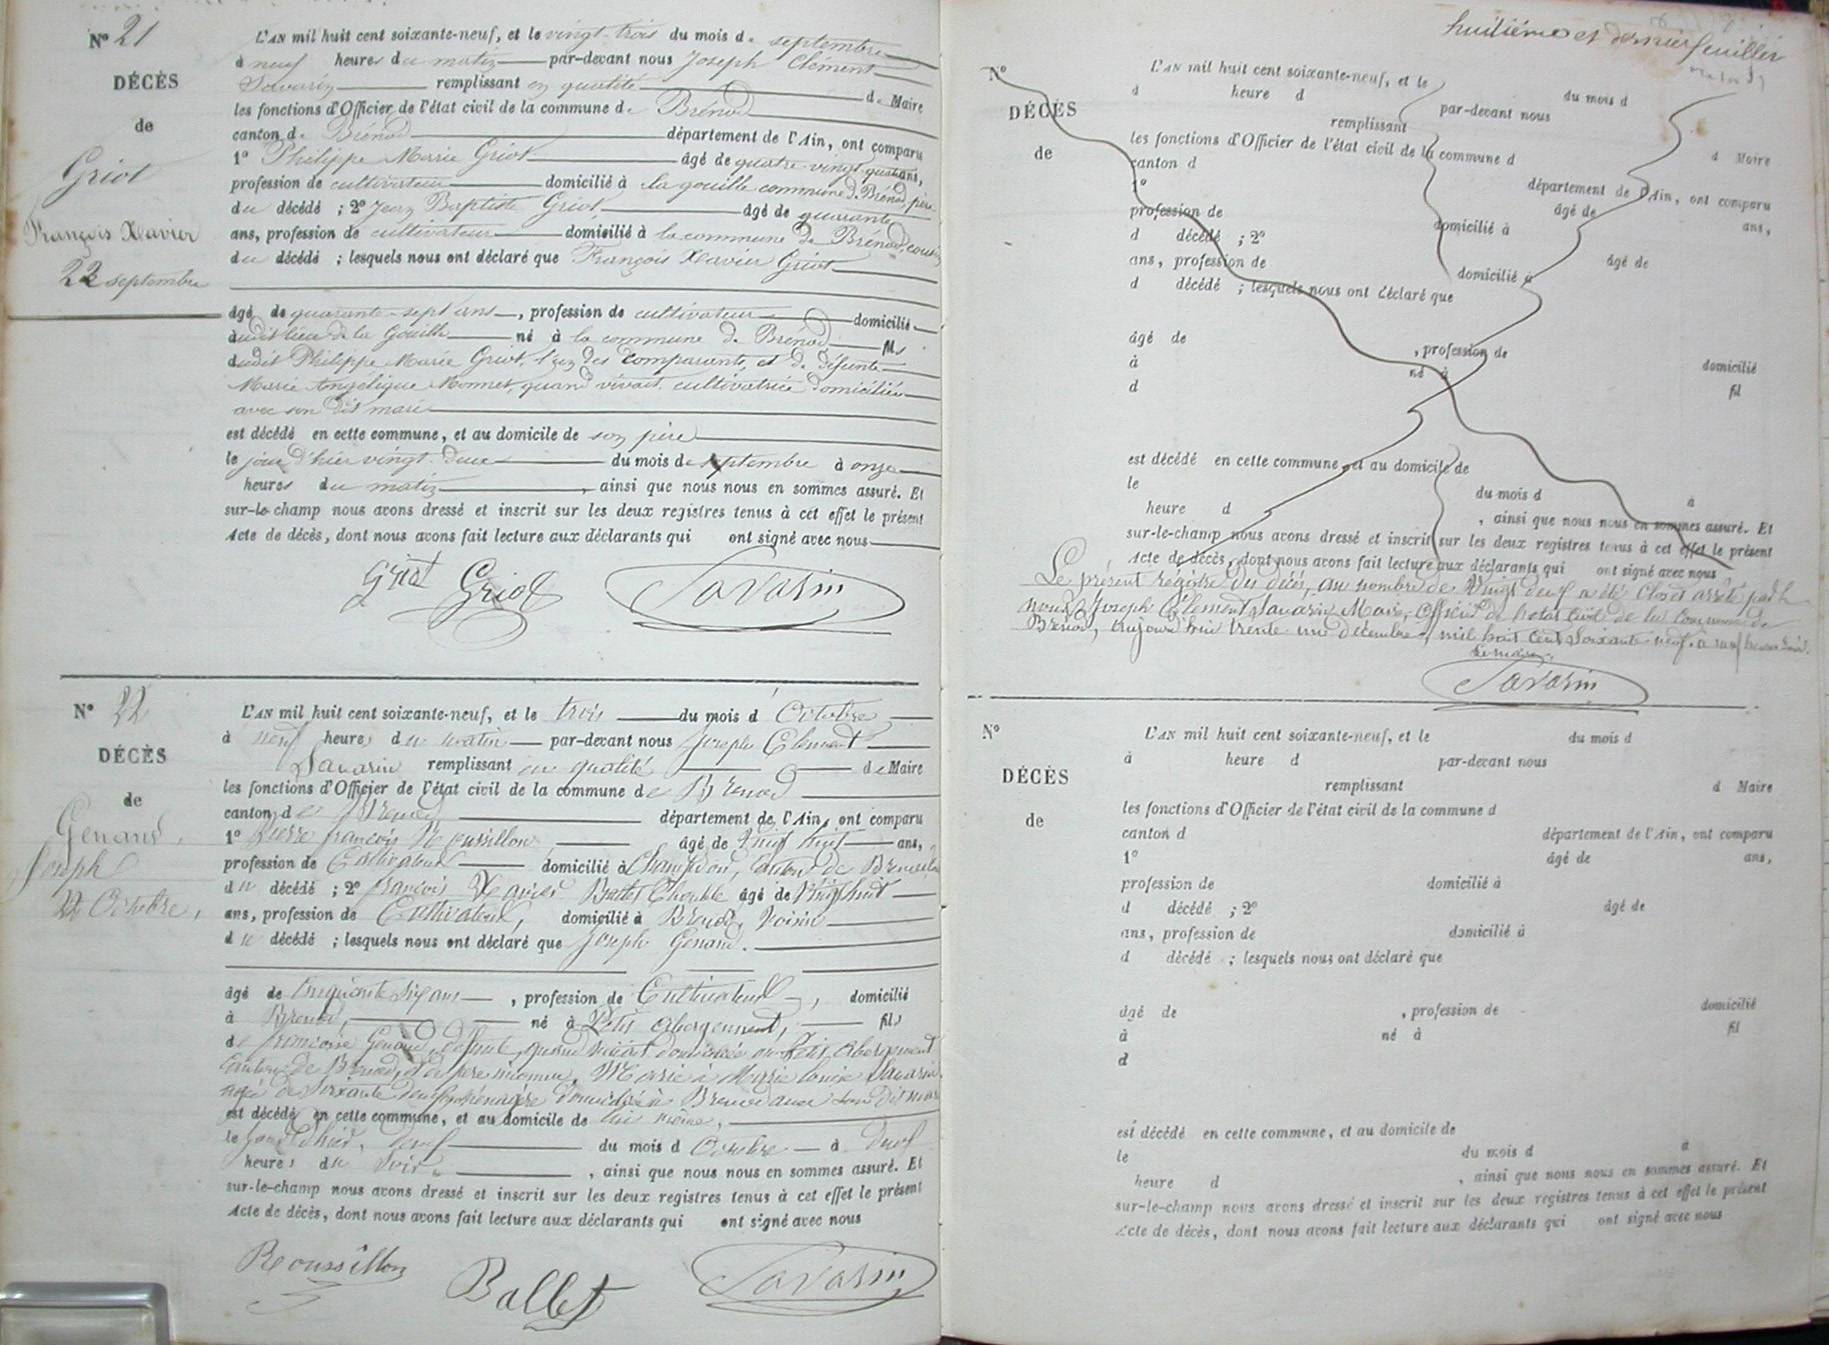 Nº 21
DÉCÈS
de
Griot
François Xavier
22 septembre
L'AN mil huit cent soixante-neuf, et le vingt-trois du mois de septembre
à neuf heures du matin par-devant nous Joseph Clément
Savarin remplissant en qualité de Maire
les fonctions d'Officier de l'état civil de la commune de Brénod
canton de Brénod département de l'Ain, ont comparu
1º Philippe Marie Griot âgé de quatre-vingt-quatre ans,
profession de cultivateur domicilié à la gouille commune de Brénod, père
du décédé ; 2º Jean Baptiste Griot âgé de quarante
ans, profession de cultivateur domicilié à la commune de Brénod, cousin
du décédé ; lesquels nous ont déclaré que François Xavier Griot
âgé de quarante-sept ans, profession de cultivateur domicilié
audit lieu de la Gouille né à la commune de Brénod fils
dudit Philippe Marie Griot, l'un des comparants, et de défunte
Marie Angélique Monnet, quand vivait cultivatrice domiciliée
avec son dit mari
est décédé en cette commune, et au domicile de son père
le jour d'hier vingt-deux du mois de septembre à onze
heures du matin, ainsi que nous nous en sommes assuré. Et
sur-le-champ nous avons dressé et inscrit sur les deux registres tenus à cet effet le présent
Acte de décès, dont nous avons fait lecture aux déclarants qui ont signé avec nous
Griot Griot Savarin
Nº 22
DÉCÈS
de
Genand,
Joseph
Octobre,
L'AN mil huit cent soixante-neuf, et le trois du mois d Octobre
à neuf heures du matin par-devant nous Joseph Clement
Savarin remplissant en qualité de Maire
les fonctions d'Officier de l'état civil de la commune de Brenod
canton de Brenod département de l'Ain, ont comparu
1º Pierre françois Roussillon, âgé de Vingt huit ans,
profession de Cultivateur domicilié à Champdor, Canton de Brenod
du décédé ; 2º françois Xavier Ballet âgé de Vingt huit
ans, profession de Cultivateur, domicilié à Brenod, Voisin
du décédé ; lesquels nous ont déclaré que Joseph Genand.
âgé de Cinquante Six ans, profession de Cultivateur, domicilié
à Brenod, né à Petit Abergement, fils
de françoise Genand, défunte, quand vivait domiciliée au Petit Abergement
Canton de Brenod, et de père inconnu, Marié à Marie Louise Savarin
agée de Soixante ménagère domiciliée à Brenod avec son Dit mari
est décédé en cette commune, et au domicile de lui même,
le jour d'hier, deux du mois d Octobre à deux
heures du Soir, ainsi que nous nous en sommes assuré. Et
sur-le-champ nous avons dressé et inscrit sur les deux registres tenus à cet effet le présent
Acte de décès, dont nous avons fait lecture aux déclarants qui ont signé avec nous
Roussillon Ballet Savarin
huitième et dernier feuillet
Nº
DÉCÈS
de
L'AN mil huit cent soixante-neuf, et le du mois d
à heure d par-devant nous
remplissant d Maire
les fonctions d'Officier de l'état civil de la commune d
canton d département de l'Ain, ont comparu
1º âgé de ans,
profession de domicilié à
d décédé ; 2º âgé de
ans, profession de domicilié à
d décédé ; lesquels nous ont déclaré que
âgé de , profession de domicilié
à né à fil
d
est décédé en cette commune, et au domicile de
le du mois d à
heure d , ainsi que nous nous en sommes assuré. Et
sur-le-champ nous avons dressé et inscrit sur les deux registres tenus à cet effet le présent
Acte de décès, dont nous avons fait lecture aux déclarants qui ont signé avec nous
Le présent registre des décès, au nombre de Vingt deux a été Clos et arrêté par
nous Joseph Clement Savarin Maire, Officier de l'état civil de la Commune de
Brénod, aujourd'hui trente un décembre, mil huit cent Soixante neuf, à neuf heures
Le maire
Savarin
Nº
DÉCÈS
de
L'AN mil huit cent soixante-neuf, et le du mois d
à heure d par-devant nous
remplissant d Maire
les fonctions d'Officier de l'état civil de la commune d
canton d département de l'Ain, ont comparu
1º âgé de ans,
profession de domicilié à
d décédé ; 2º âgé de
ans, profession de domicilié à
d décédé ; lesquels nous ont déclaré que
âgé de , profession de domicilié
à né à fil
d
est décédé en cette commune, et au domicile de
le du mois d à
heure d , ainsi que nous nous en sommes assuré. Et
sur-le-champ nous avons dressé et inscrit sur les deux registres tenus à cet effet le présent
Acte de décès, dont nous avons fait lecture aux déclarants qui ont signé avec nous